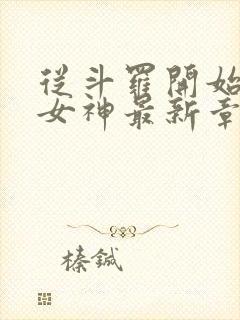 從斗羅開始
女神最新章
榛鋮